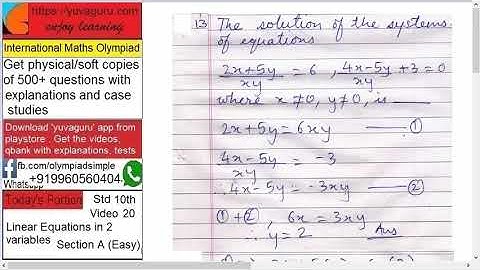 https://yuvaguru.com
enjoy learning
International Maths Olympiad
Get physical/soft copies
of 500+ questions with
explanations and case
studies
Download 'yuvaguru' app from
playstore . Get the videos,
qbank with explanations, tests
fb.com/olympiadsimple
Whatsapp
+919960560404
Today's Portion
Std 10th
Video 20
Linear Equations in 2
variables
Section A (Easy)
13 The solution of the systems
of equations
2x+5y/xy = 6 , 4x-5y/xy +3=0
where x≠0, y≠0, is ____
2x+5y=6xy ——— ①
4x-5y/xy = -3
∴4x-5y=-3xy —— ②
①+②, 6x=3xy
∴ y=2 Ans